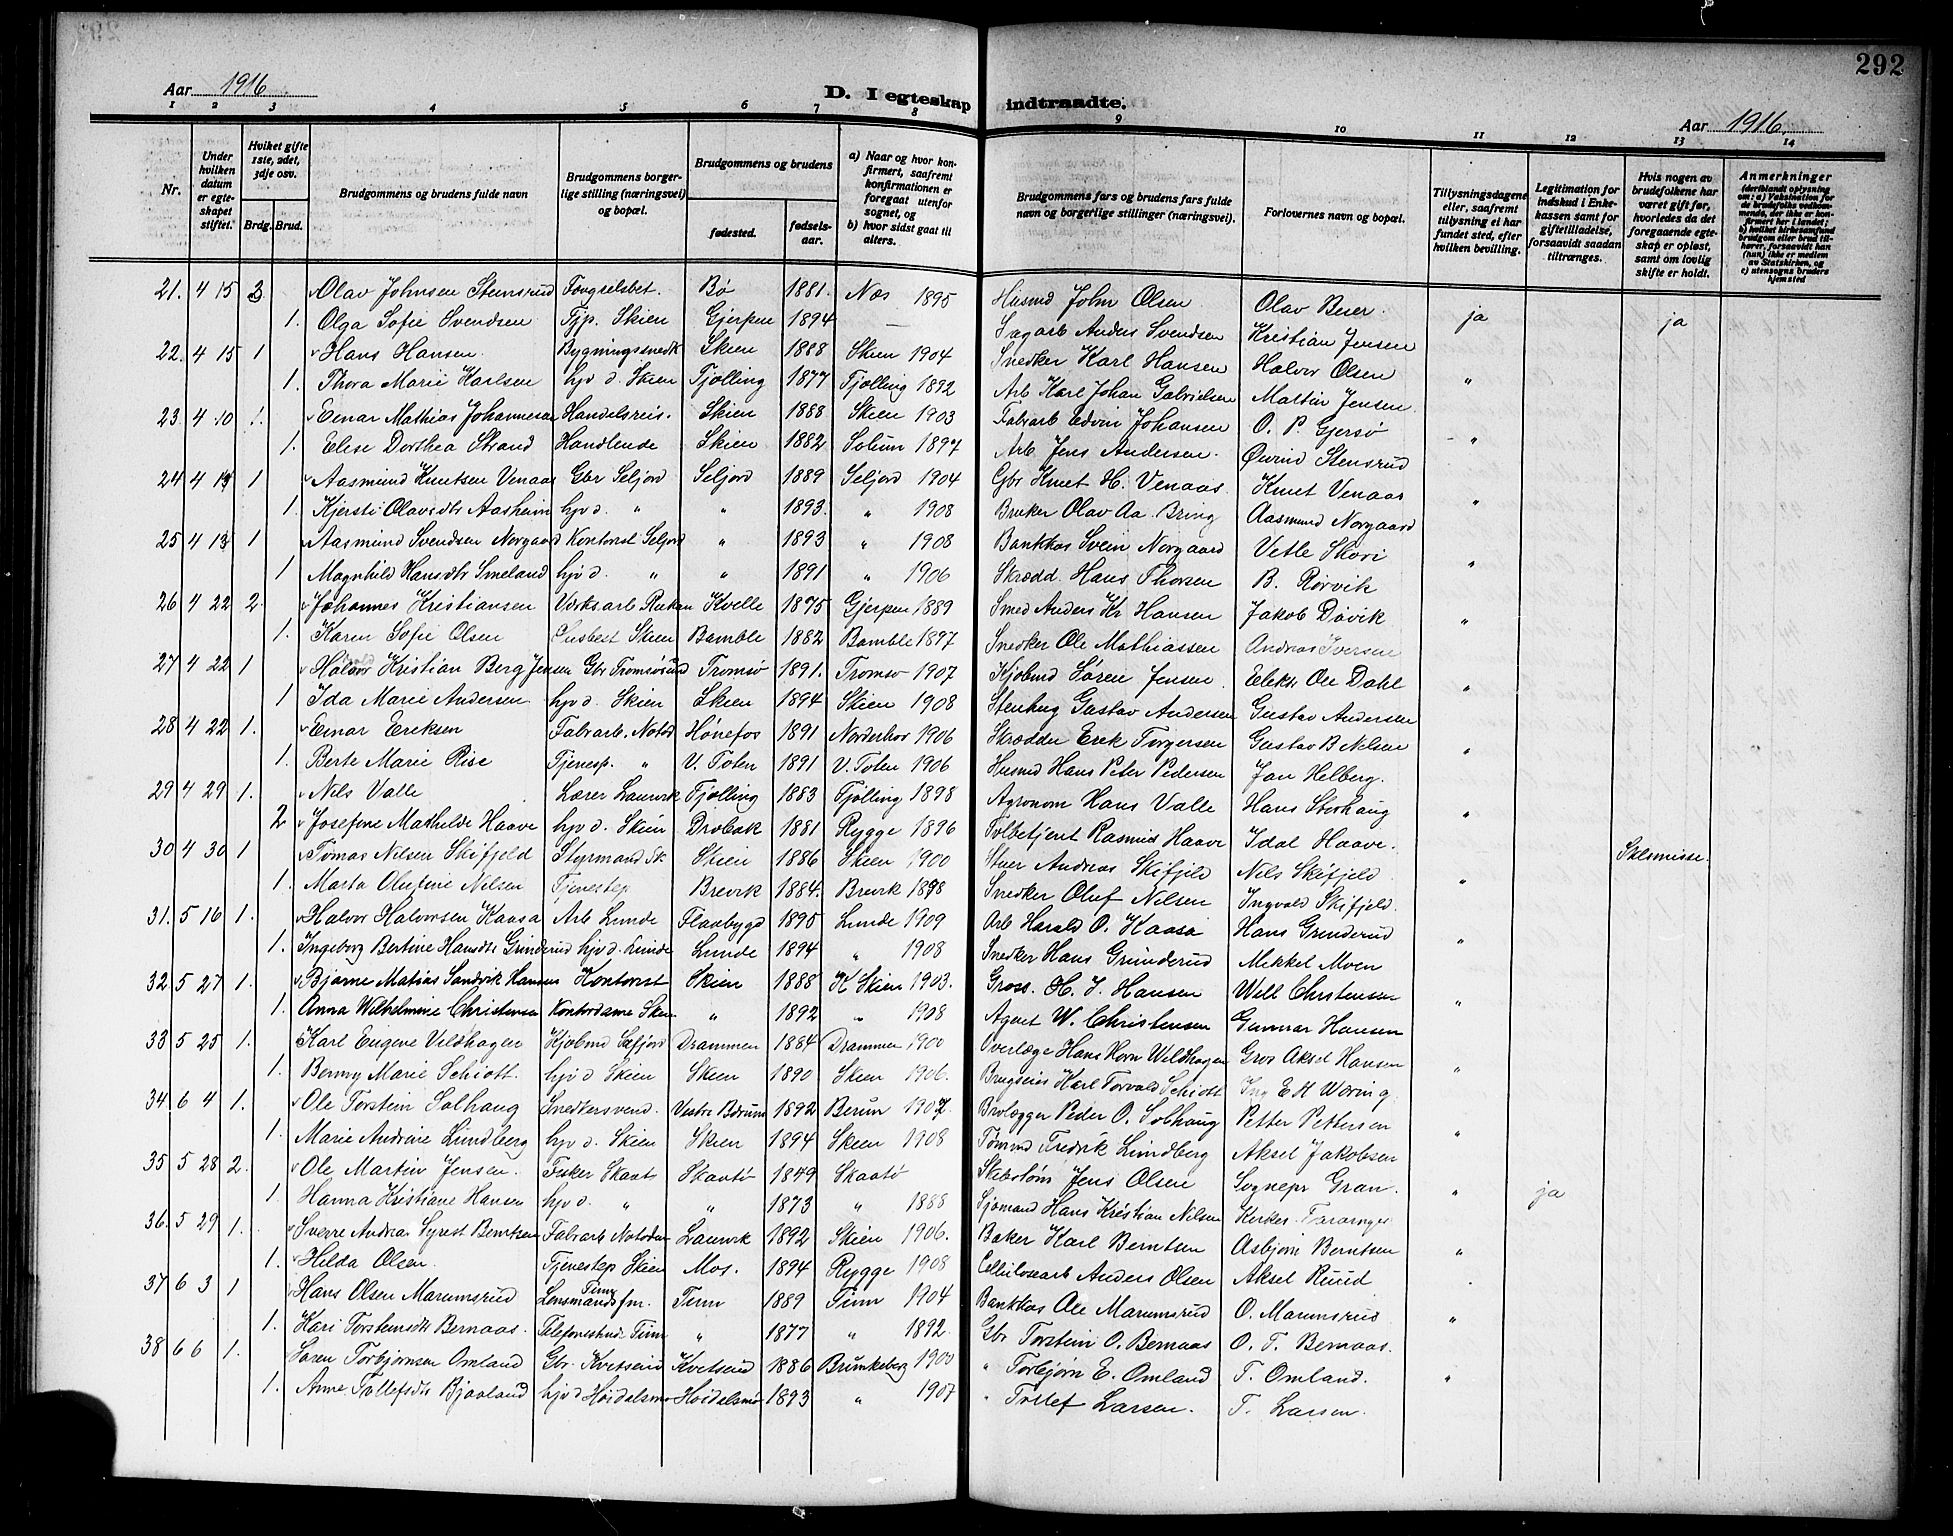 292
Aar 1916
D. I egteskap indtraadte.
Aar 1916.
1 2 3 4 5 6 7 8 9 10 11 12 13 14
Nr.
Under hvilken datum er egteskapet stiftet.
Hviket gifte 1ste, 2det, 3dje osv.
Brdg. Brud.
Brudgommens og brudens fulde navn
Brudgommens borgerlige stilling (næringsvei) og bopæl.
Brudgommens og brudens
fødested.
fødselsaar.
a) Naar og hvor konfirmert, saafremt konfirmationen er foregaat utenfor sognet, og
b) hvor sidst gaat til alters.
Brudgommens fars og brudens fars fulde navn og borgerlige stillinger (næringsvei).
Forlovernes navn og bopæl.
Tillysningsdagene eller, saafremt tillysning ei har fundet sted, efter hvilken bevilling.
Legitimation for indskud i Enkekassen samt for giftetilladelse, forsaavidt saadan tiltrænges.
Hvis nogen av brudefolkene har været gift før, hvorledes da det foregaaende egteskap er opløst, samt om lovlig skifte er holdt.
Anmerkninger (deriblandt oplysning om: a) Vaksination for de brudefolks vedkommende, der ikke er konfirmert her i landet; b) hvilket kirkesamfund brudgom eller brud tilhører, forsaavidt han (hun) ikke er medlem av Statskirken, og c) utensogns bruders hjemsted
21. 4 15 2 Olav Johnsen Stensrud Fængselsbet. Bø 1881. Næs 1895 Husmd John Olsen Olav Beier. ja ja
1. Olga Sofie Svendsen Tjp. Skien Gjerpen 1894 — Sagarb Anders Svendsen Kristian Jensen
22. 4 15 1 Hans Hansen. Bygningssnedk Skien 1888 Skien 1904 Snedker Karl Hansen Halvor Olsen "
1. Thora Marie Karlsen hjv d. Skien Tjølling 1877 Tjølling 1892 Arb Karl Johan Gabrielsen Martin Jensen.
23. 4 10 1. Einar Mathias Johannesen Handelsreis. Skien 1888 Skien 1903 Fabrarb Edvin Johansen O. P. Gjersø "
1. Elise Dorthea Strand Handlende Skien 1882 Solum 1897 Arb. Jens Andersen. Øivind Stensrud
24 4 1 Aasmund Knutsen Venaas Gbr Seljord Seljord 1889 Seljord 1904 Gbr Knut H. Venaas Knut Venaas "
1. Kjersti Olavsdtr Aasheim hjv d. " " 1893. " 1908 Bruker Olav Aa. Bring Aasmund Norgaard
25 4 13 1 Aasmund Svendsen Norgaard Kontorist Seljord " 1893 " 1908 Bankkas Svein Norgaard Vetle Skori "
1 Magnhild Hansdtr Smeland hjv d. " " 1891 " 1906 Skrædd. Hans Thorsen B. Rørvik
26 4 22 2. Johannes Kristiansen Verksarb Rukan Kvelle 1875 Gjerpen 1889 Smed Anders Kr Hansen Jakob Døvik "
1. Karen Sofie Olsen Husbest Skien Bamble 1882 Bamble 1897 Snedker Ole Mathiassen Andreas Iversen
27 4 22 1 Halvor Kristian Berg Jensen Gbr Tromsøsund Tromsø 1891. Tromsø 1907 Kjøbmd Søren Jensen Elektr Ole Dahl "
1 Ida Marie Andersen hjv d. Skien Skien 1894 Skien 1908 Stenhug Gustav Andersen Gustav Andersen
28 4 22 1. Einar Eriksen Fabrarb. Notod Hønefos 1891 Norderhov 1906 Skrædder Erik Torgersen Gustav B Nilsen "
1. Berte Marie Rise Tjenesp. " V. Toten 1891 V. Toten 1906 Husmd Hans Peter Pedersen Jan Helberg.
29 4 29 1. Nils Valle Lærer Laurvik Tjølling 1883 Tjølling 1898 Agronom Hans Valle Hans Storhaug "
2 Josefine Mathilde Haave hjv d. Skien Drøbak 1881 Rygge 1896 Tolbetjent Rasmus Haave Idal Haave. Skilsmisse.
30 4 30 1 Tomas Nilsen Skifjeld Styrmand Sk Skien 1886 Skien 1900 Stuer Andreas Skifjeld Nils Skifjeld "
1. Marta Olufine Nilsen Tjenestep Brevik 1884. Brevik 1898 Snedker Oluf Nilsen Ingvald Skifjeld.
31. 5 16 1. Halvor Halvorsen Kaasa Arb Lunde Flaabygd 1895 Lunde 1909 Arb Harald O. Kaasa Hans Grinderud "
1. Ingeborg Bertine Hansdtr Grinderud hjv d. Lunde Lunde 1894 " 1908 Snedker Hans Grinderud Mikkel Moen
32 5 27 1. Bjarne Matias Sandvik Hansen Kontorist Skien 1888 K Skien 1903. Gross. H. J. Hansen Will Christensen "
1. Anna Wilhelmine Christensen Kontordame Skien " 1892 " 1908 Agent W. Christensen Gunnar Hansen
33 5 25 1. Karl Eugene Vildhagen Kjøbmd Sefjord Drammen 1884 Drammen 1900 Overlæge Hans Horn Wildhagen Gros Aksel Hansen "
1. Benny Marie Schiott. hjv d Skien Skien 1890 Skien 1906. Brugseier Karl Torvald Schiott Ing E H Woring
34 6 4 1. Ole Torstein Solhaug Snedkersvend. Vestre Bærum 1892 Berum 1907. Brolægger Peder O. Solhaug Petter Pettersen "
1. Marie Andrine Lundberg hjv d. Skien Skien 1894 Skien 1908 Tømmd Fredrik Lundberg Aksel Jakobsen
35 5 28 2. Ole Martin Jensen. Fisker Skaatø Skaatø 1849 Skaatø Skibstøm Jens Olsen Sognepr Gran. " ja
1. Hanna Kristiane Hansen hjv d. " " 1873 " 1888 Sjømand Hans Kristian Nilsen Kirkes. Faranger
36. 5 29 1. Sverre Andreas Syrest Berntsen Fabrarb Notodden Laurvik 1892 Skien 1906. Baker Karl Berntsen Asbjørn Berntsen "
1. Hilda Olsen. Tjenestep Skien Mos. 1894 Rygge 1908 Cellulosearb Anders Olsen Aksel Ruud
37 6 3 1 Hans Olsen Marumsrud Lensmandsfm. Tinn Tinn 1889 Tinn 1904 Bankkas Ole Marumsrud O. Marumsrud "
1. Kari Torsteinsdtr Bernaas. Telefonstinde Tinn " 1877 " 1892. Gbr Torstein O. Bernaas O. T. Bernaas.
38 6 6 1. Søren Torbjørnsen Omland Gbr. Kvitseid Kvitseid 1886 Brunkeberg 1900 " Torbjørn E. Omland T. Omland. "
1. Anne Tollefsdtr Bjaaland hjv d Høidalsmo Høidalsmo 1893 " 1907 " Tollef Larsen. T. Larsen.